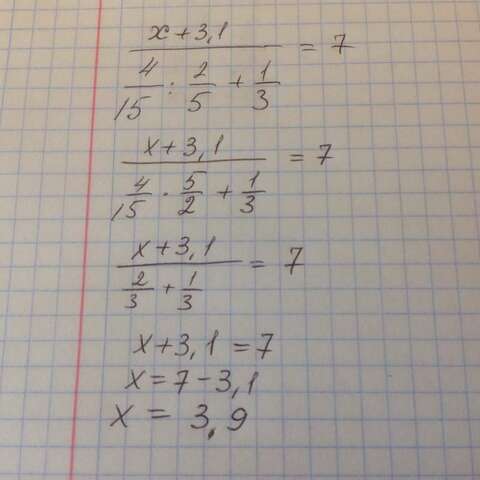 (x+3,1)/(4/15 : 2/5 + 1/3) = 7
(x+3,1)/(4/15 · 5/2 + 1/3) = 7
(x+3,1)/(2/3 + 1/3) = 7
x+3,1 = 7
x = 7 - 3,1
x = 3,9